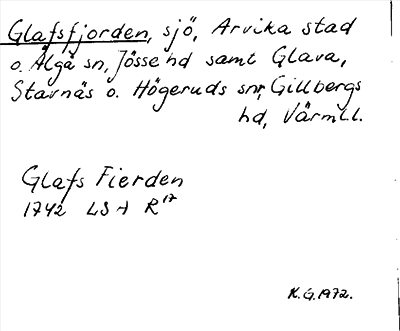 Glafsfjorden, sjö, Arvika stad
o. Älgå sn, Jösse hd samt Glava,
Stavnäs o. Högeruds snr, Gillbergs
hd, Värml.
Glafs Fierden
1742 LSA R17
K.G. 1972.